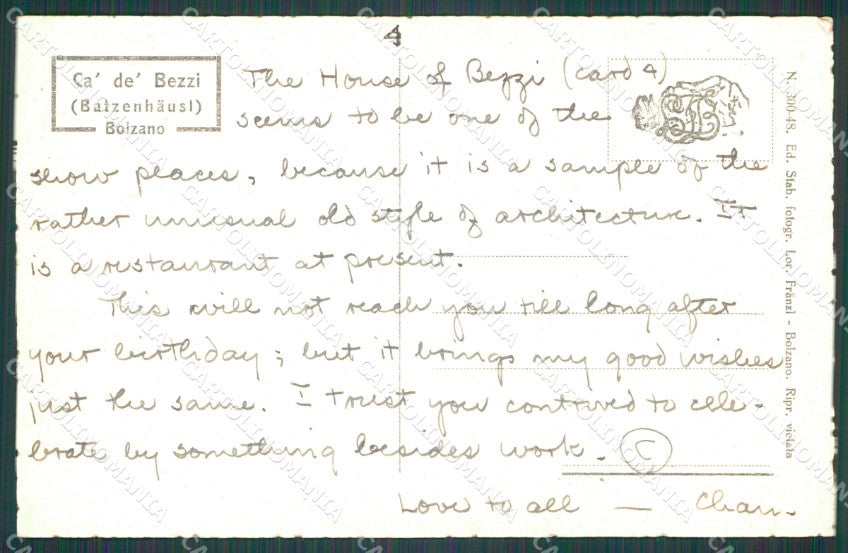 4
Ca' de' Bezzi
(Batzenhäusl)
Bolzano
The House of Bezzi (card 4)
seems to be one of the
show places, because it is a sample of the
rather unusual old style of architecture. It
is a restaurant at present.
This will not reach you till long after
your birthday; but it brings my good wishes
just the same. I trust you contrived to cele-
brate by something besides work.
Love to all — Chan.
N. 300-48. Ed. Stab. fotogr. Lor. Fränzl - Bolzano. Ripr. vietata
CARTOLINOMANIA